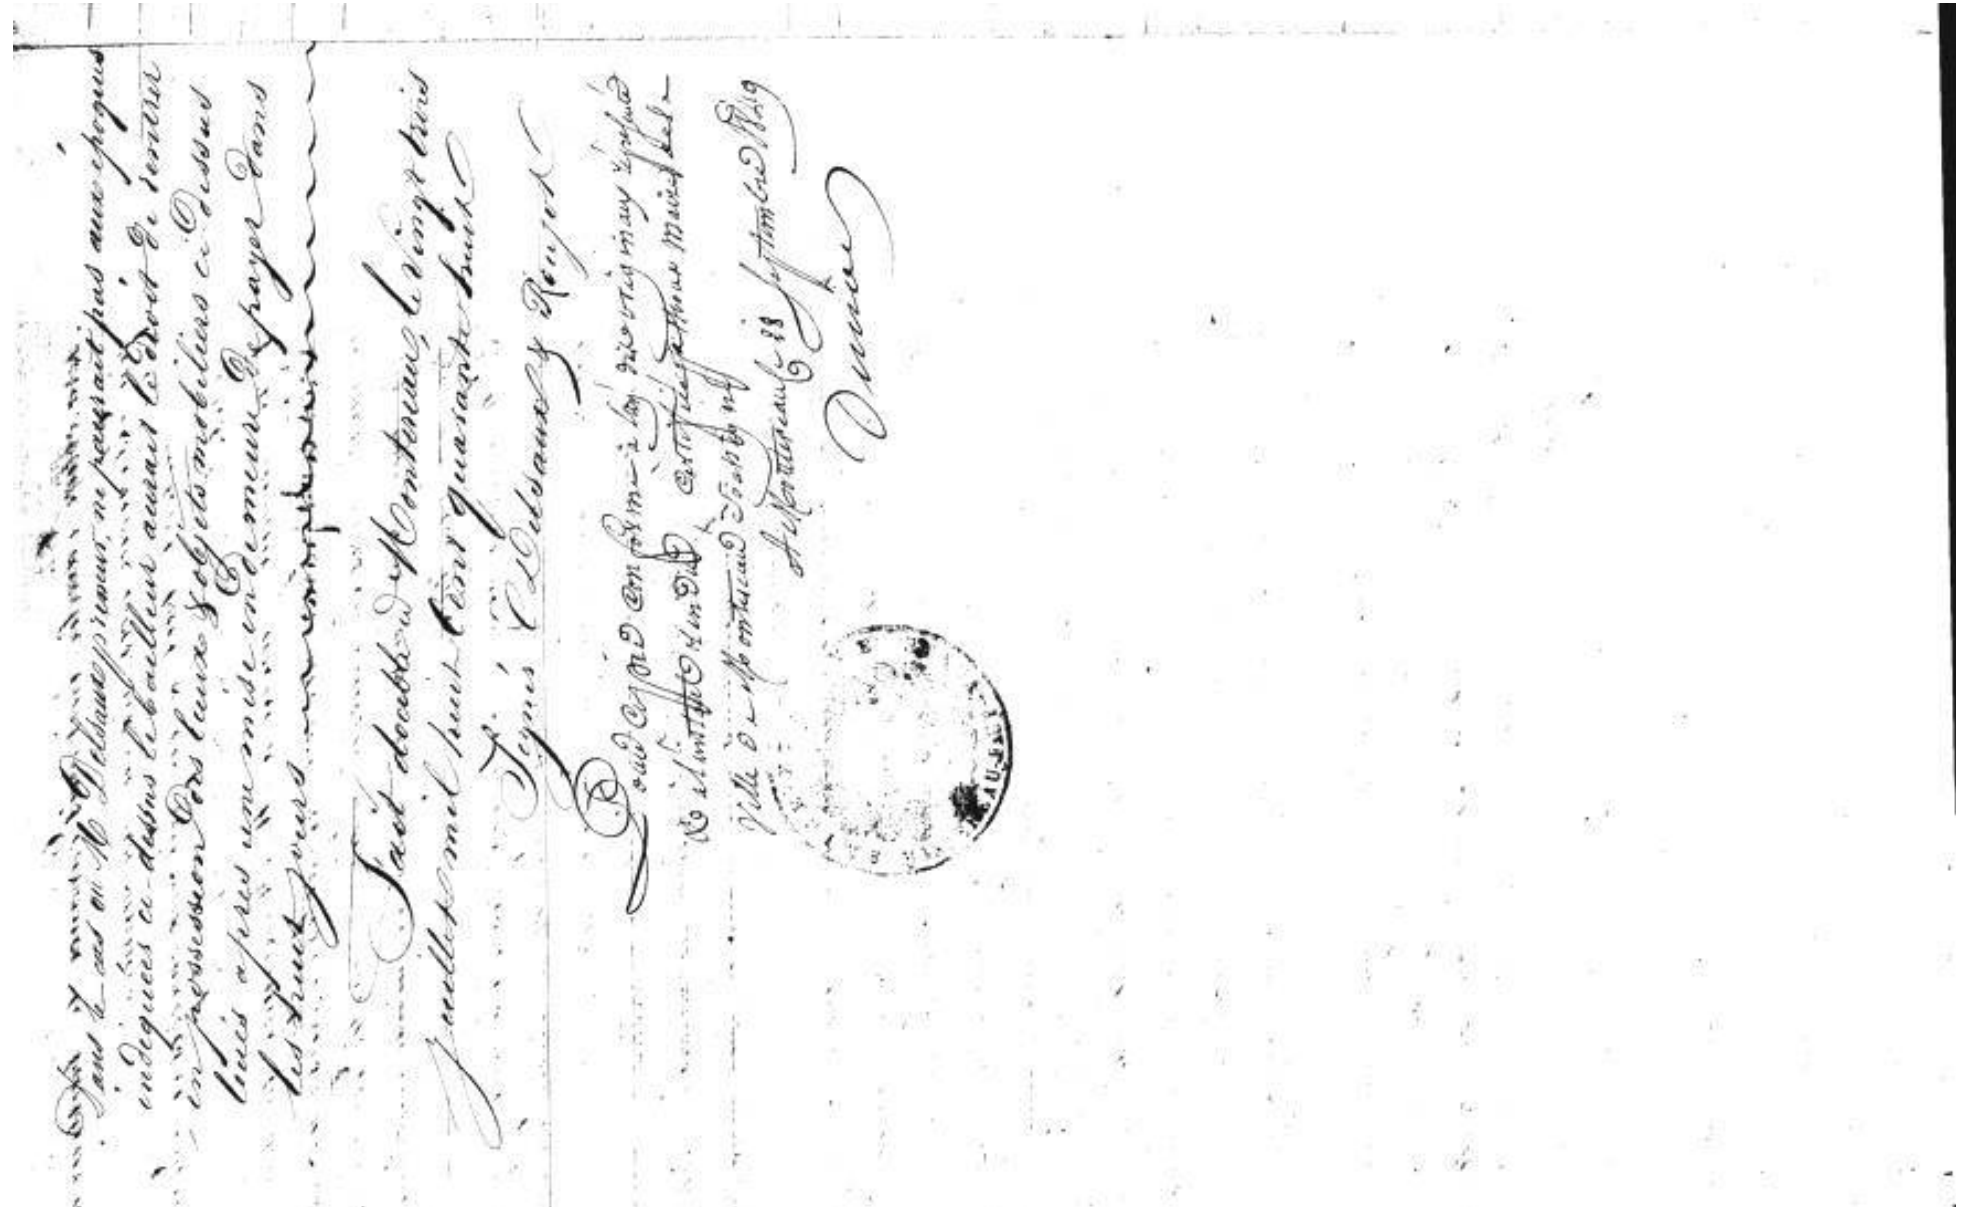 Dans le cas où M Delsaux preneur, ne payerait pas aux epoques
indiquées ci-dessus le bailleur aurait le droit de rentrer
en possession des lieux & objets mobiliers ci dessus
loués après une mise en demeure de payer dans
les huit jours
Fait double à Montereau, le vingt trois
Juillet mil huit cent quarante huit
Signés Delsaux & Roujot
Pour Copie conforme à les originaux représenté
et à l'instant rendu Certifié par nous Maire de la
Ville de Montereau soussigné
A Montereau le 28 Septembre 1849